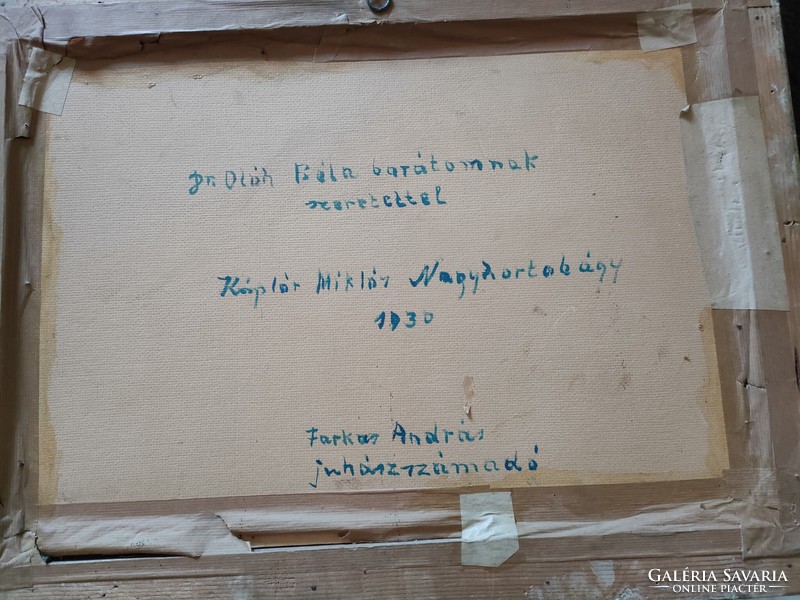 Dr. Oláh Béla barátomnak
szeretettel
Káplár Miklós Nagyhortobágy
1930
Farkas András
juhászszámadó
GALÉRIA SAVARIA
ONLINE PIACTÉR